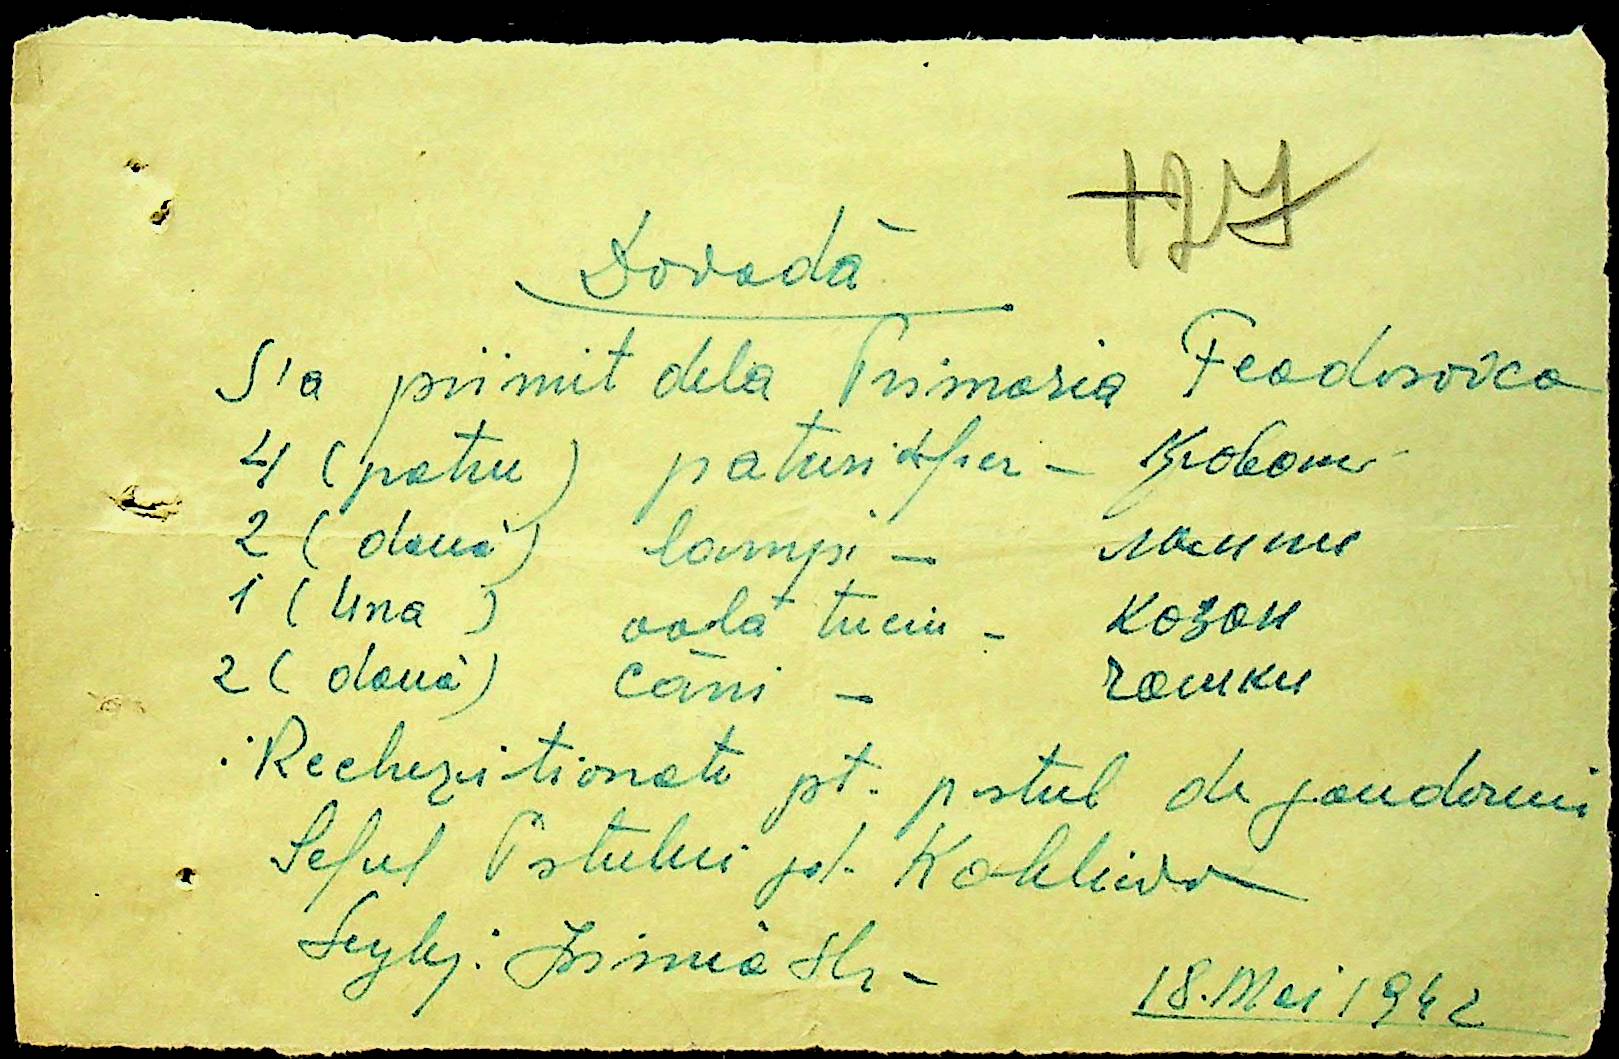 127
Dovadă
S'a primit dela Primaria Feodorovca
4 (patru) paturi fier – Кровати
2 (două) lampi – лампи
1 (una) oală tuciu – Козан
2 (două) căni – Чашки
Rechizitionate pt. postul de jandarmi
Seful Postului jd.
18. Mai 1942